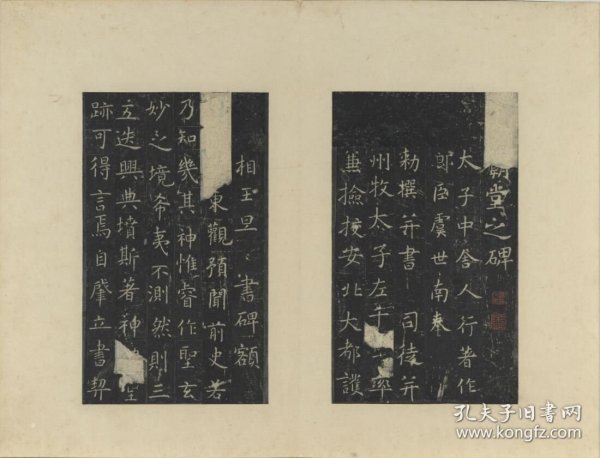 廟堂之碑
太子中舍人行著作
郎臣虞世南奉
勅撰并書 司徒并
州牧太子左千 率
兼檢挍安北大都護
相王旦 書碑額
東觀預聞前史若
乃知幾其神惟睿作聖玄
妙之境希夷不測然則三
五迭興典墳斯著神 聖
跡可得言焉自肇立書契
孔夫子旧书网
www.kongfz.com